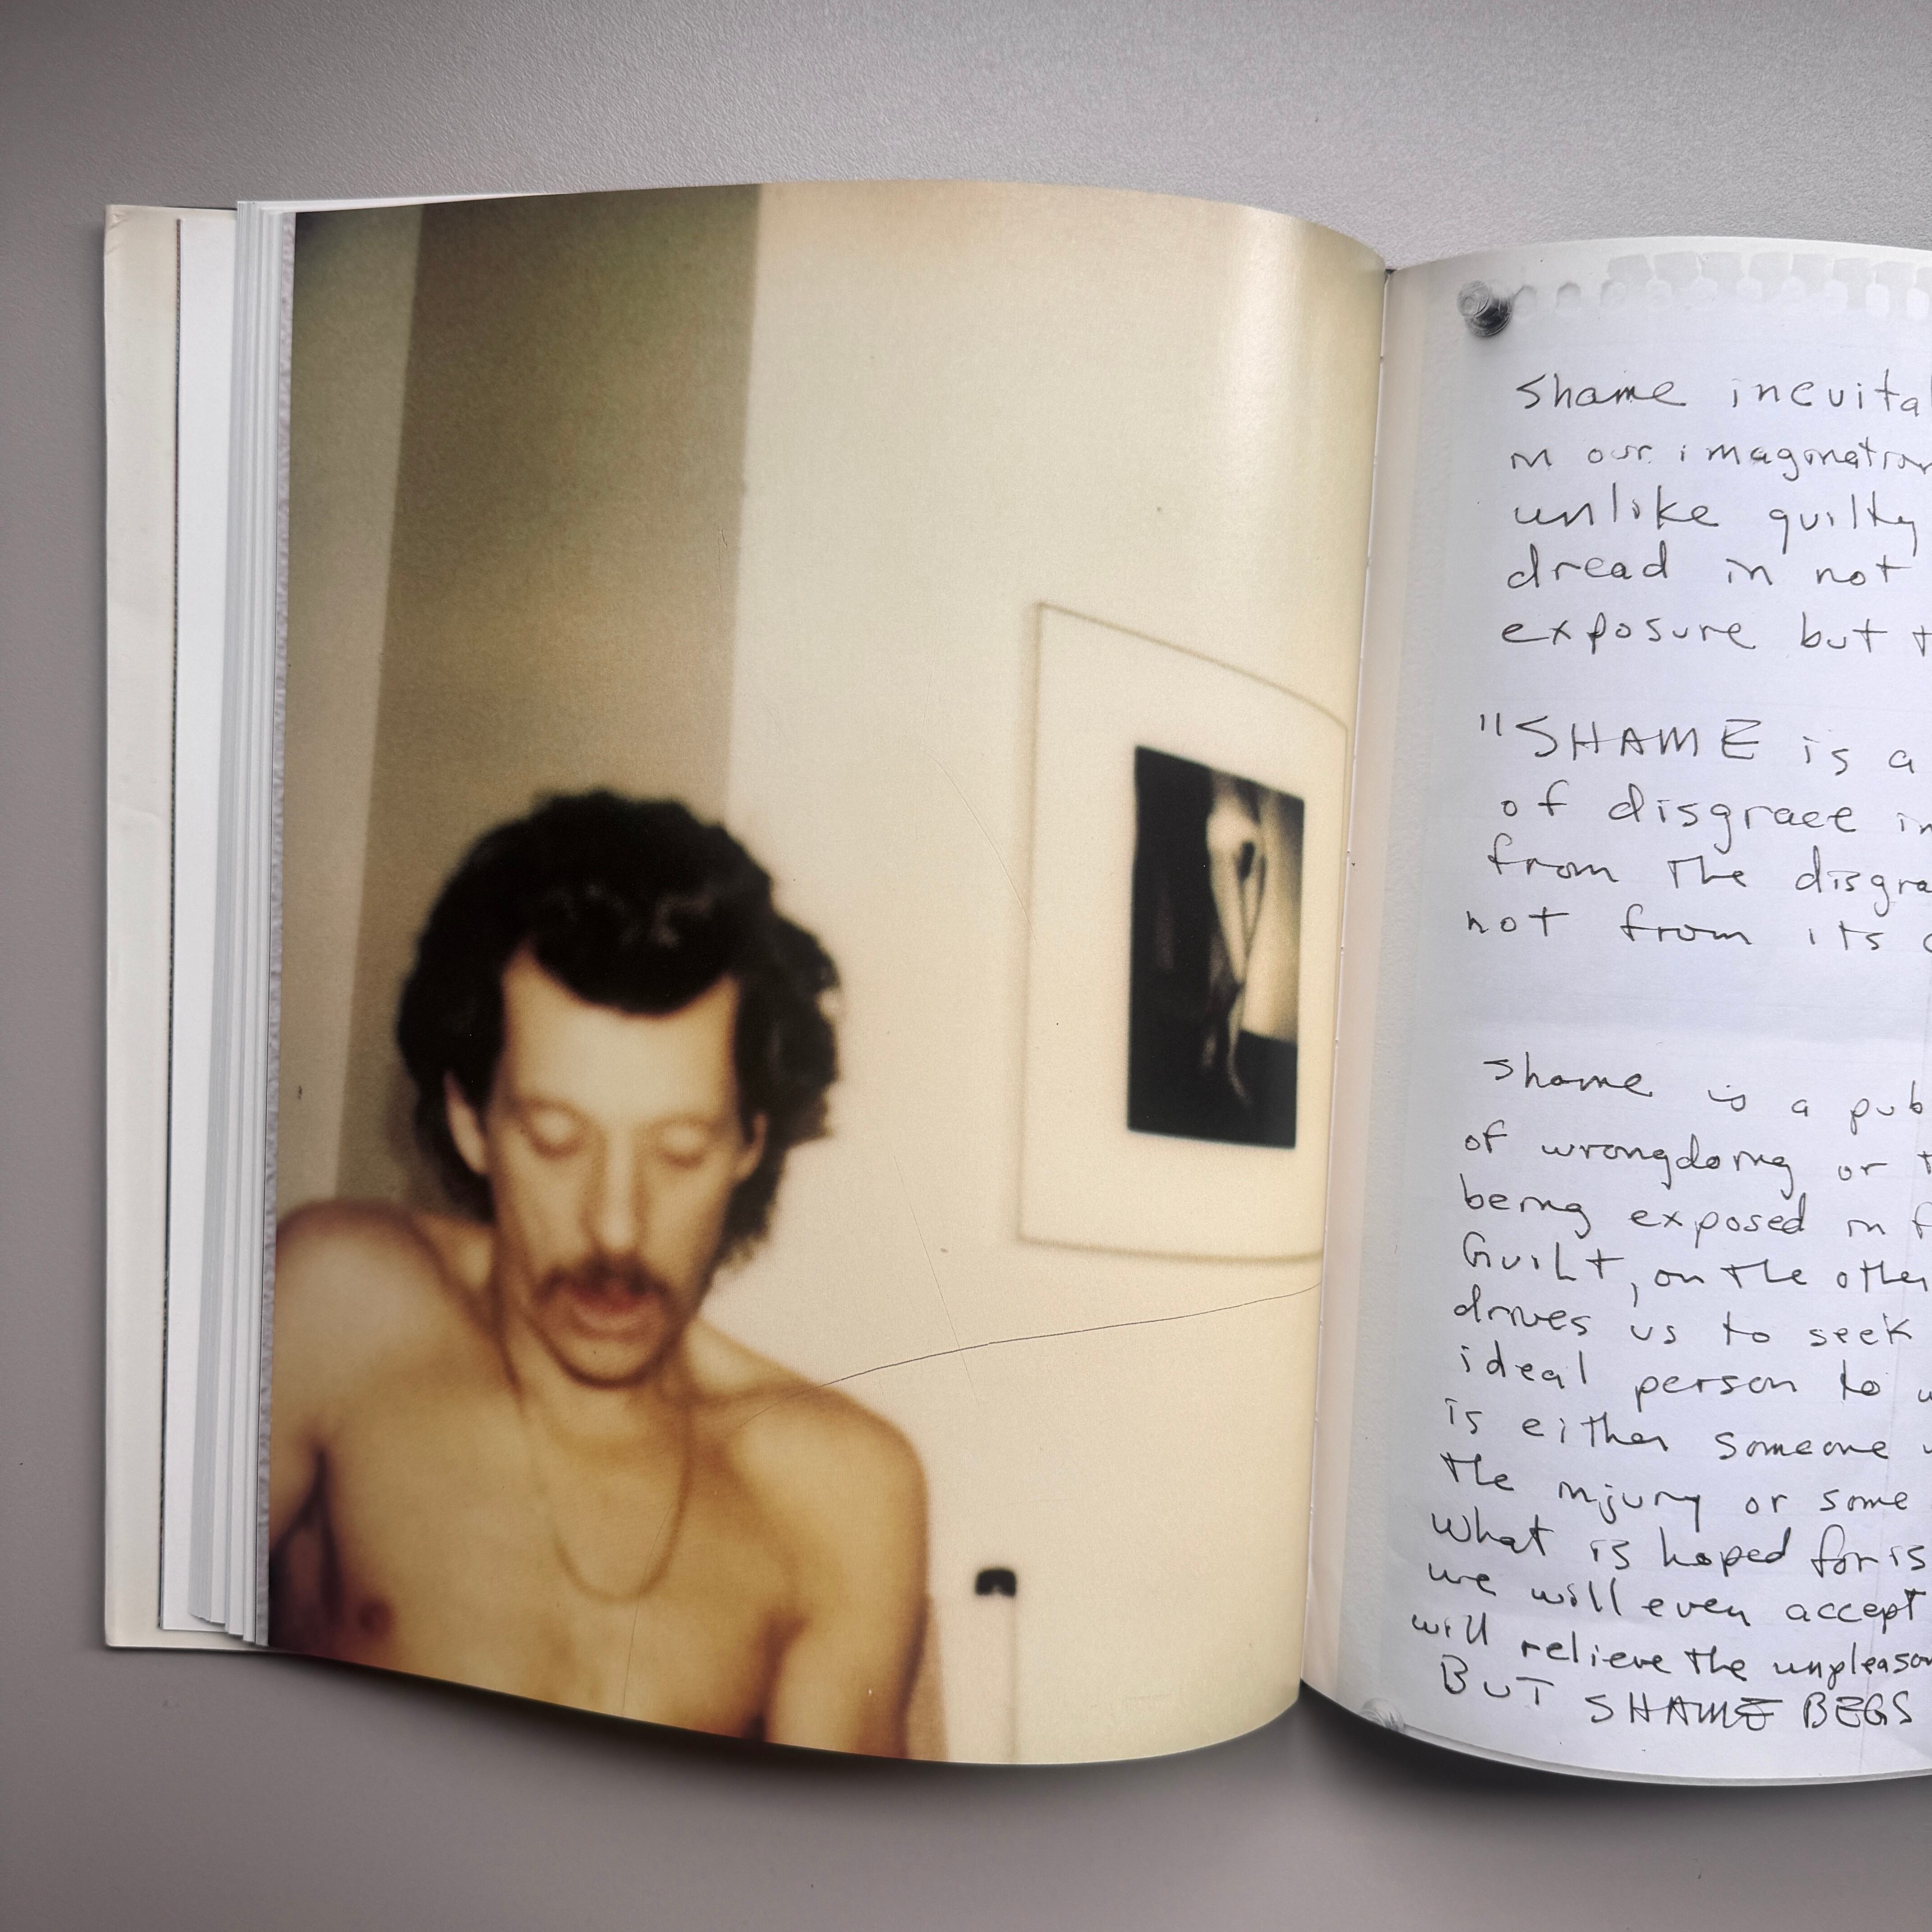 Shame inevita
in our imagination
unlike guilty
dread in not
exposure but t
"SHAME is a
of disgrace in
from the disgra
not from its
Shame is a pub
of wrongdoing or t
being exposed in f
GuiLt, on the other
drives us to seek
ideal person to u
is either someone
the injury or some
what is hoped for is
we will even accept
will relieve the unpleasan
BuT SHAME BEGS